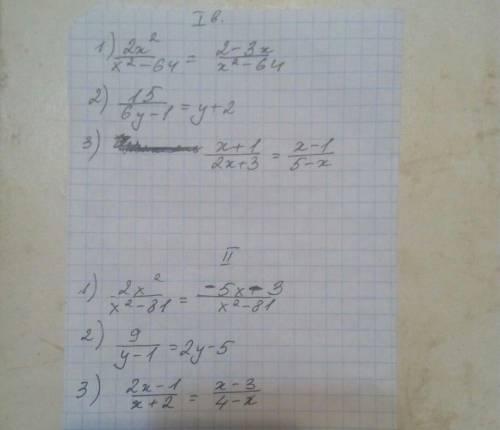 I в.
1) 2x²/(x²-64) = (2-3x)/(x²-64)
2) 15/(6y-1) = y+2
3) (x+1)/(2x+3) = (x-1)/(5-x)
II
1) 2x²/(x²-81) = (-5x-3)/(x²-81)
2) 9/(y-1) = 2y-5
3) (2x-1)/(x+2) = (x-3)/(4-x)